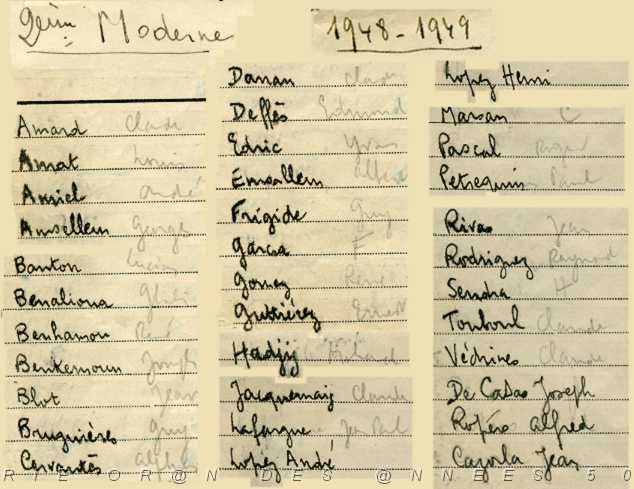 2ème Moderne
1948-1949
Amard Claude
Amat Louis
Amiel André
Amsellem Georges
Banton Lucien
Benaliona
Benhamou René
Benkemoun Joseph
Blot Jean
Bruguières Guy
Cervantès
Danan Claude
Deffès Edmond
Edric Yvan
Emsallem Alfred
Frigide Guy
Garcia F
Gomez René
Guttiérez Ernest
Hadjij
Jacquemain Claude
Lafargue Jean Paul
Lopez André
Lopez Henri
Marsan C
Pascal Roger
Petrequin Paul
Rivas Jean
Rodriguez Raymond
Sendra H
Touboul Claude
Védrines Claude
De Casas Joseph
Ropéro Alfred
Cazorla Jean
RIEOR@NDES @NNEES 50